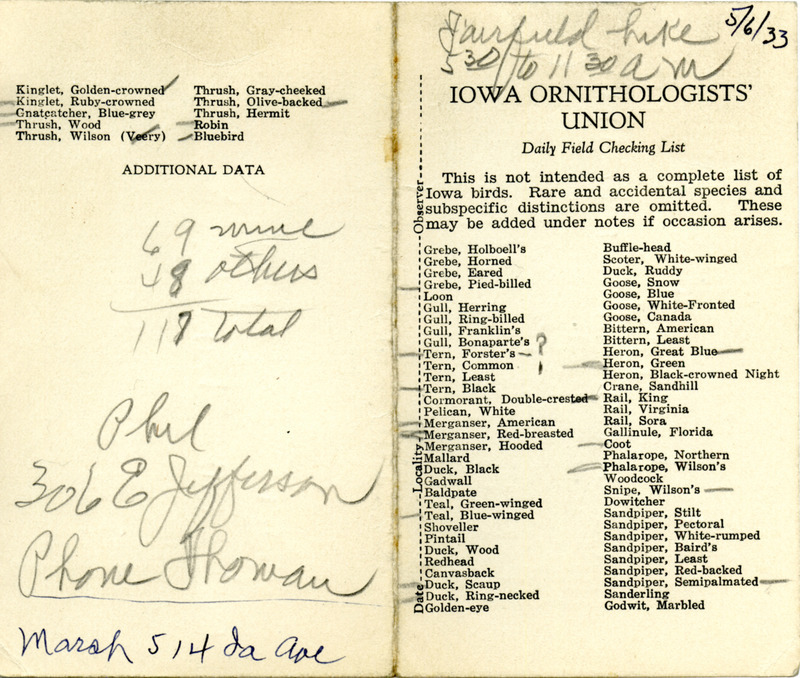 Kinglet, Golden-crowned
Kinglet, Ruby-crowned
Gnatcatcher, Blue-grey
Thrush, Wood
Thrush, Wilson (Veery)
Thrush, Gray-cheeked
Thrush, Olive-backed
Thrush, Hermit
Robin
Bluebird
ADDITIONAL DATA
69 mine
48 others
117 total
Phil
306 E Jefferson
Phone Thoman
Marsh 514 Ia Ave
5/6/33
Fairfield Lake
5 30 to 11 30 a m
IOWA ORNITHOLOGISTS'
UNION
Daily Field Checking List
This is not intended as a complete list of
Iowa birds. Rare and accidental species and
subspecific distinctions are omitted. These
may be added under notes if occasion arises.
Date Locality Observer
Grebe, Holboell's
Grebe, Horned
Grebe, Eared
Grebe, Pied-billed
Loon
Gull, Herring
Gull, Ring-billed
Gull, Franklin's
Gull, Bonaparte's
Tern, Forster's – ?
Tern, Common
Tern, Least
Tern, Black
Cormorant, Double-crested
Pelican, White
Merganser, American
Merganser, Red-breasted
Merganser, Hooded
Mallard
Duck, Black
Gadwall
Baldpate
Teal, Green-winged
Teal, Blue-winged
Shoveller
Pintail
Duck, Wood
Redhead
Canvasback
Duck, Scaup
Duck, Ring-necked
Golden-eye
Buffle-head
Scoter, White-winged
Duck, Ruddy
Goose, Snow
Goose, Blue
Goose, White-Fronted
Goose, Canada
Bittern, American
Bittern, Least
Heron, Great Blue
Heron, Green
Heron, Black-crowned Night
Crane, Sandhill
Rail, King
Rail, Virginia
Rail, Sora
Gallinule, Florida
Coot
Phalarope, Northern
Phalarope, Wilson's
Woodcock
Snipe, Wilson's
Dowitcher
Sandpiper, Stilt
Sandpiper, Pectoral
Sandpiper, White-rumped
Sandpiper, Baird's
Sandpiper, Least
Sandpiper, Red-backed
Sandpiper, Semipalmated
Sanderling
Godwit, Marbled